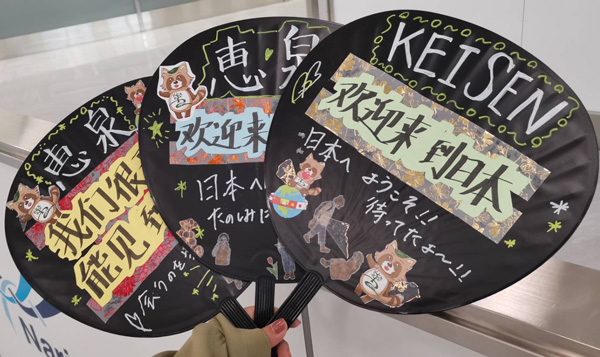 恵泉
我们很
能见
会うのを
恵泉
欢迎来
日本へ
たのしみに
KEISEN
欢迎来到日本
日本へ
ようこそ!!
待ってたよ〜!!
Nari